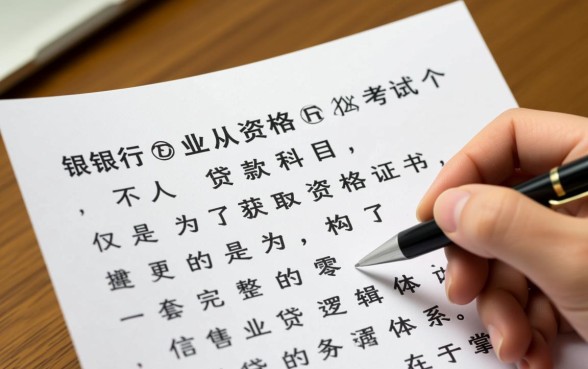 银银行业从资格考试个
,不人 贷款科目,
仅是为了获取资格证书,
更的是为,构了
一套完整的零
,信售业贷逻辑体
贷的务体系。
在于掌